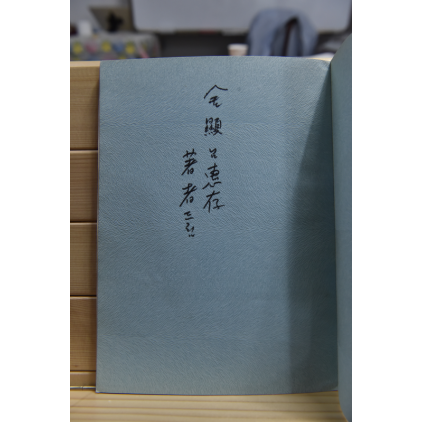 金顯 惠存
著者드림